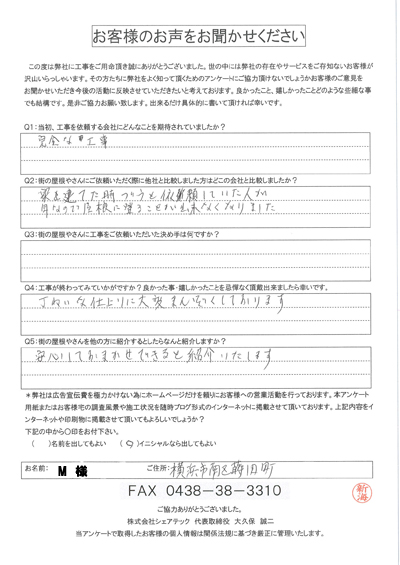 お客様のお声をお聞かせください
この度は弊社に工事をご用命頂き誠にありがとうございました。世の中には弊社の存在やサービスをご存知ないお客様が
沢山いらっしゃいます。その方たちに弊社をよく知って頂くためのアンケートにご協力頂けないでしょうかお客様のご意見を
お聞かせいただき今後の活動に反映させていただきたいと考えております。良かったこと、嬉しかったことどのような些細な事
でも結構です。是非ご協力お願い致します。出来るだけ具体的に書いて頂ければ幸いです。
Q1:当初、工事を依頼する会社にどんなことを期待されていましたか?
完全な工事
Q2:街の屋根やさんにご依頼いただく際に他社と比較しました方はどこの会社と比較しましたか?
家を建てた時つづうと依頼していた人が
年なので屋根に登ることが出来なくなりました
Q3:街の屋根やさんに工事をご依頼いただいた決め手は何ですか?
Q4:工事が終わってみていかがですか?良かった事・嬉しかったことを忌憚なく頂戴出来ましたら幸いです。
丁ねいな仕上りに大変まんぞくしております
Q5:街の屋根やさんを他の方に紹介するとしたらなんと紹介しますか?
安心しておまかせできると紹介いたします
*弊社は広告宣伝費を極力かけない為にホームページだけを頼りにお客様への営業活動を行っております。本アンケート
用紙またはお客様宅の調査風景や施工状況を随時ブログ形式のインターネットに掲載させて頂いております。上記内容をイ
ンターネットや印刷物に掲載させて頂いてもよろしいでしょうか?
下記の中から○印をお付下さい。
( )名前を出してもよい (○)イニシャルなら出してもよい
お名前: M 様 ご住所: 横浜市南区
FAX 0438-38-3310
ご協力ありがとうございました。
株式会社シェアテック 代表取締役 大久保 誠二
当アンケートで取得したお客様の個人情報は関係法規に基づき厳正に管理いたします。